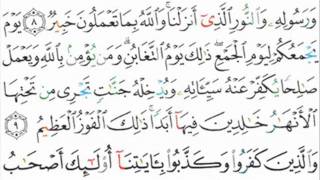 وَرَسُولِهِۦ وَٱلنُّورِ ٱلَّذِىٓ أَنزَلْنَا ۚ وَٱللَّهُ بِمَا تَعْمَلُونَ خَبِيرٌ ٨ يَوْمَ
يَجْمَعُكُمْ لِيَوْمِ ٱلْجَمْعِ ۖ ذَٰلِكَ يَوْمُ ٱلتَّغَابُنِ ۗ وَمَن يُؤْمِنۢ بِٱللَّهِ وَيَعْمَلْ
صَٰلِحًا يُكَفِّرْ عَنْهُ سَيِّـَٔاتِهِۦ وَيُدْخِلْهُ جَنَّٰتٍ تَجْرِى مِن تَحْتِهَا
ٱلْأَنْهَٰرُ خَٰلِدِينَ فِيهَآ أَبَدًا ۚ ذَٰلِكَ ٱلْفَوْزُ ٱلْعَظِيمُ ٩
وَٱلَّذِينَ كَفَرُوا۟ وَكَذَّبُوا۟ بِـَٔايَٰتِنَآ أُو۟لَٰٓئِكَ أَصْحَٰبُ